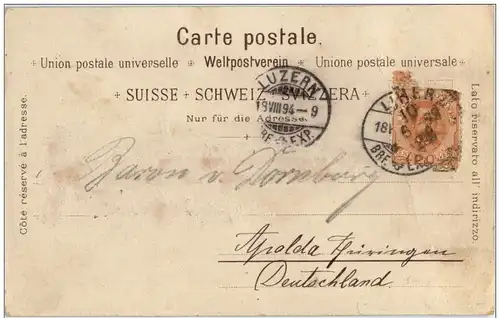 Carte postale.
Union postale universelle Weltpostverein Unione postale universale
SUISSE SCHWEIZ SVIZZERA
Nur für die Adresse.
Côte réservé à l'adresse.
Lato riservato all' indirizzo.
LUZERN
18 VIII 94 – 9
BRF. EXP.
LUZERN
BRF. EXP.
Baron v. Dornberg
Apolda Thüringen
Deutschland.